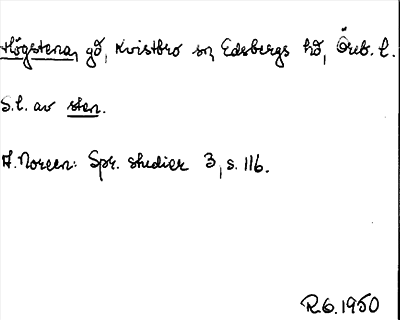 Högstena, gd, Kvistbro sn, Edsbergs hd, Öreb. l.
S.l. av sten.
A. Noreen: Spr. studier 3, s. 116.
R.G. 1950